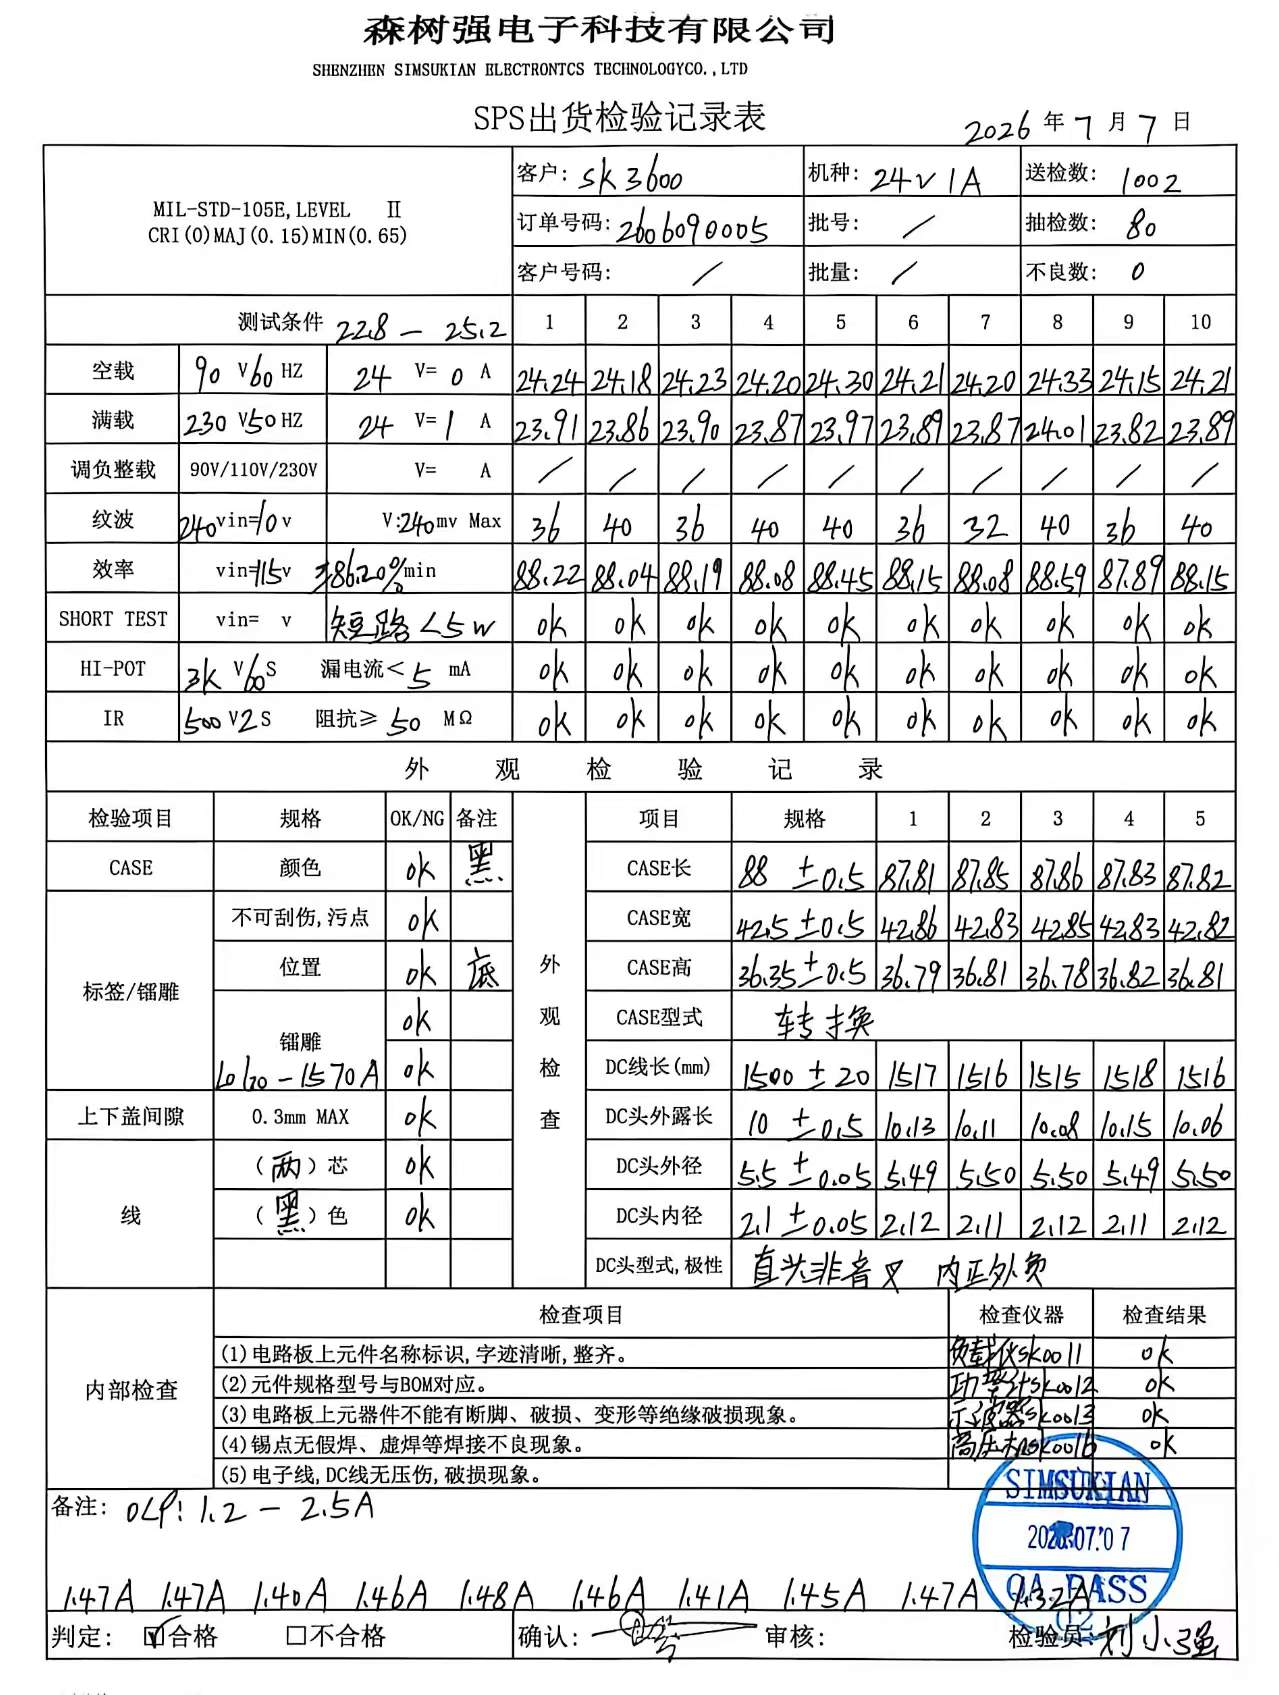 森树强电子科技有限公司
SHENZHEN SIMSUKIAN ELECTRONTCS TECHNOLOGYCO.,LTD
SPS出货检验记录表
2026 年 7 月 7 日
MIL-STD-105E,LEVEL Ⅱ
CRI(0)MAJ(0.15)MIN(0.65)
客户: SK3600 机种: 24V 1A 送检数: 1002
订单号码: 2606090005 批号: / 抽检数: 80
客户号码: / 批量: / 不良数: 0
测试条件 22.8 — 25.2 1 2 3 4 5 6 7 8 9 10
空载 90 V 60 HZ 24 V= 0 A 24.24 24.18 24.23 24.20 24.30 24.21 24.20 24.33 24.15 24.21
满载 230 V 50 HZ 24 V= 1 A 23.91 23.86 23.90 23.87 23.97 23.89 23.87 24.01 23.82 23.89
调负整载 90V/110V/230V V= A / / / / / / / / / /
纹波 240vin=10v V:240mv Max 36 40 36 40 40 36 32 40 36 40
效率 vin=115v ≥86.20%min 88.22 88.04 88.19 88.08 88.45 88.15 88.08 88.59 87.89 88.15
SHORT TEST vin= v 短路<5W OK OK OK OK OK OK OK OK OK OK
HI-POT 3K V 60 S 漏电流< 5 mA OK OK OK OK OK OK OK OK OK OK
IR 500 V 2 S 阻抗≥ 50 MΩ OK OK OK OK OK OK OK OK OK OK
外 观 检 验 记 录
检验项目 规格 OK/NG 备注 项目 规格 1 2 3 4 5
CASE 颜色 OK 黑 CASE长 88 ±0.5 87.81 87.85 87.86 87.83 87.82
不可刮伤,污点 OK CASE宽 42.5±0.5 42.86 42.83 42.85 42.83 42.82
标签/镭雕 位置 OK 底 外 CASE高 36.35±0.5 36.79 36.81 36.78 36.82 36.81
OK 观 CASE型式 转换
镭雕 OK 检 DC线长(mm) 1500 ± 20 1517 1516 1515 1518 1516
-1570A
上下盖间隙 0.3mm MAX OK 查 DC头外露长 10 ±0.5 10.13 10.11 10.08 10.15 10.06
线 (两)芯 OK DC头外径 5.5 ±0.05 5.49 5.50 5.50 5.49 5.50
(黑)色 OK DC头内径 2.1 ±0.05 2.12 2.11 2.12 2.11 2.12
DC头型式,极性 直头非音叉 内正外负
内部检查 检查项目 检查仪器 检查结果
(1)电路板上元件名称标识,字迹清晰,整齐。 负载仪SK0011 OK
(2)元件规格型号与BOM对应。 功率计SK0012 OK
(3)电路板上元器件不能有断脚、破损、变形等绝缘破损现象。 示波器SK0013 OK
(4)锡点无假焊、虚焊等焊接不良现象。 高压机SK0016 OK
(5)电子线,DC线无压伤,破损现象。
SIMSUKIAN
备注: OLP: 1.2 — 2.5A
07.07
QA PASS
02
1.47A 1.47A 1.40A 1.46A 1.48A 1.46A 1.41A 1.45A 1.47A 1.32A
判定: ☑合格 □不合格 确认: 审核: 检验员: 刘小强